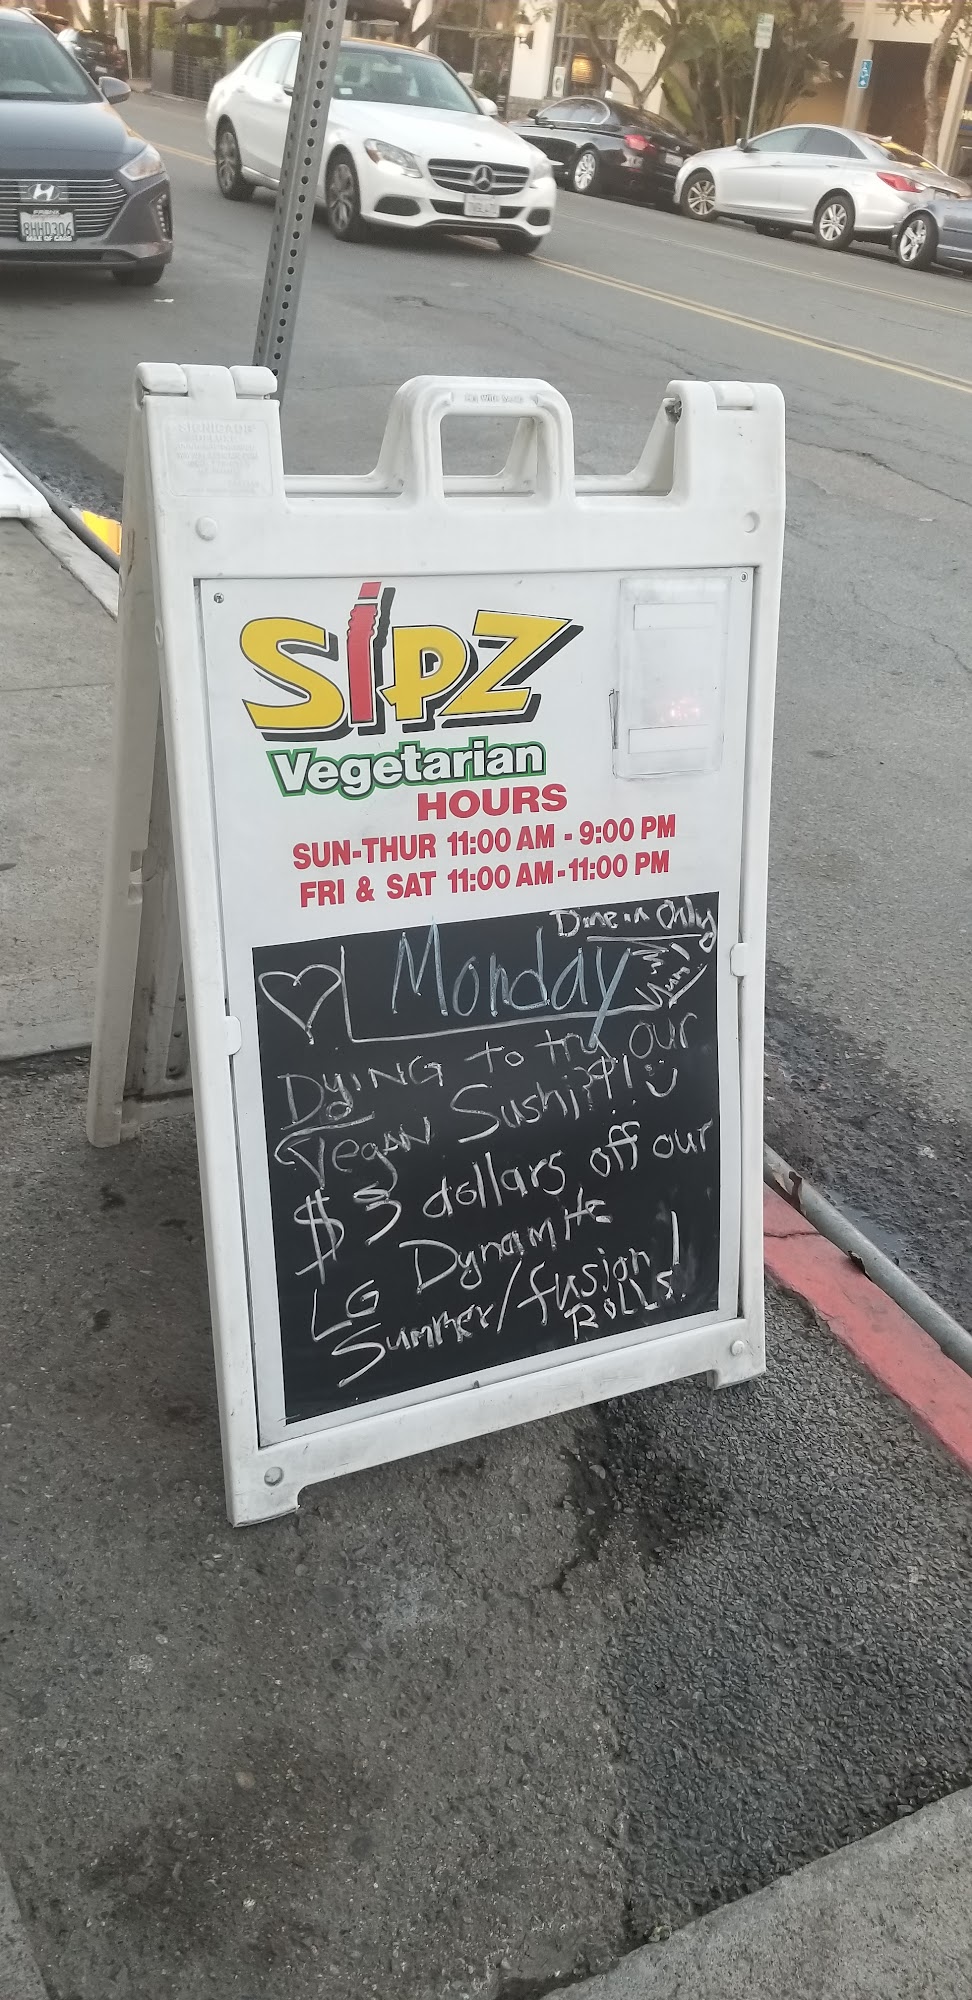 8HHD306
MILE OF CARS
SIGNICADE
DELUXE
SiPZ
Vegetarian
HOURS
SUN-THUR 11:00 AM - 9:00 PM
FRI & SAT 11:00 AM-11:00 PM
Dine in Only
Monday
Yum!
DyING to try our
VegAN Sushi??!!
$3 dollars off our
LG Dynamite
Summer/fusion!
ROLLS!